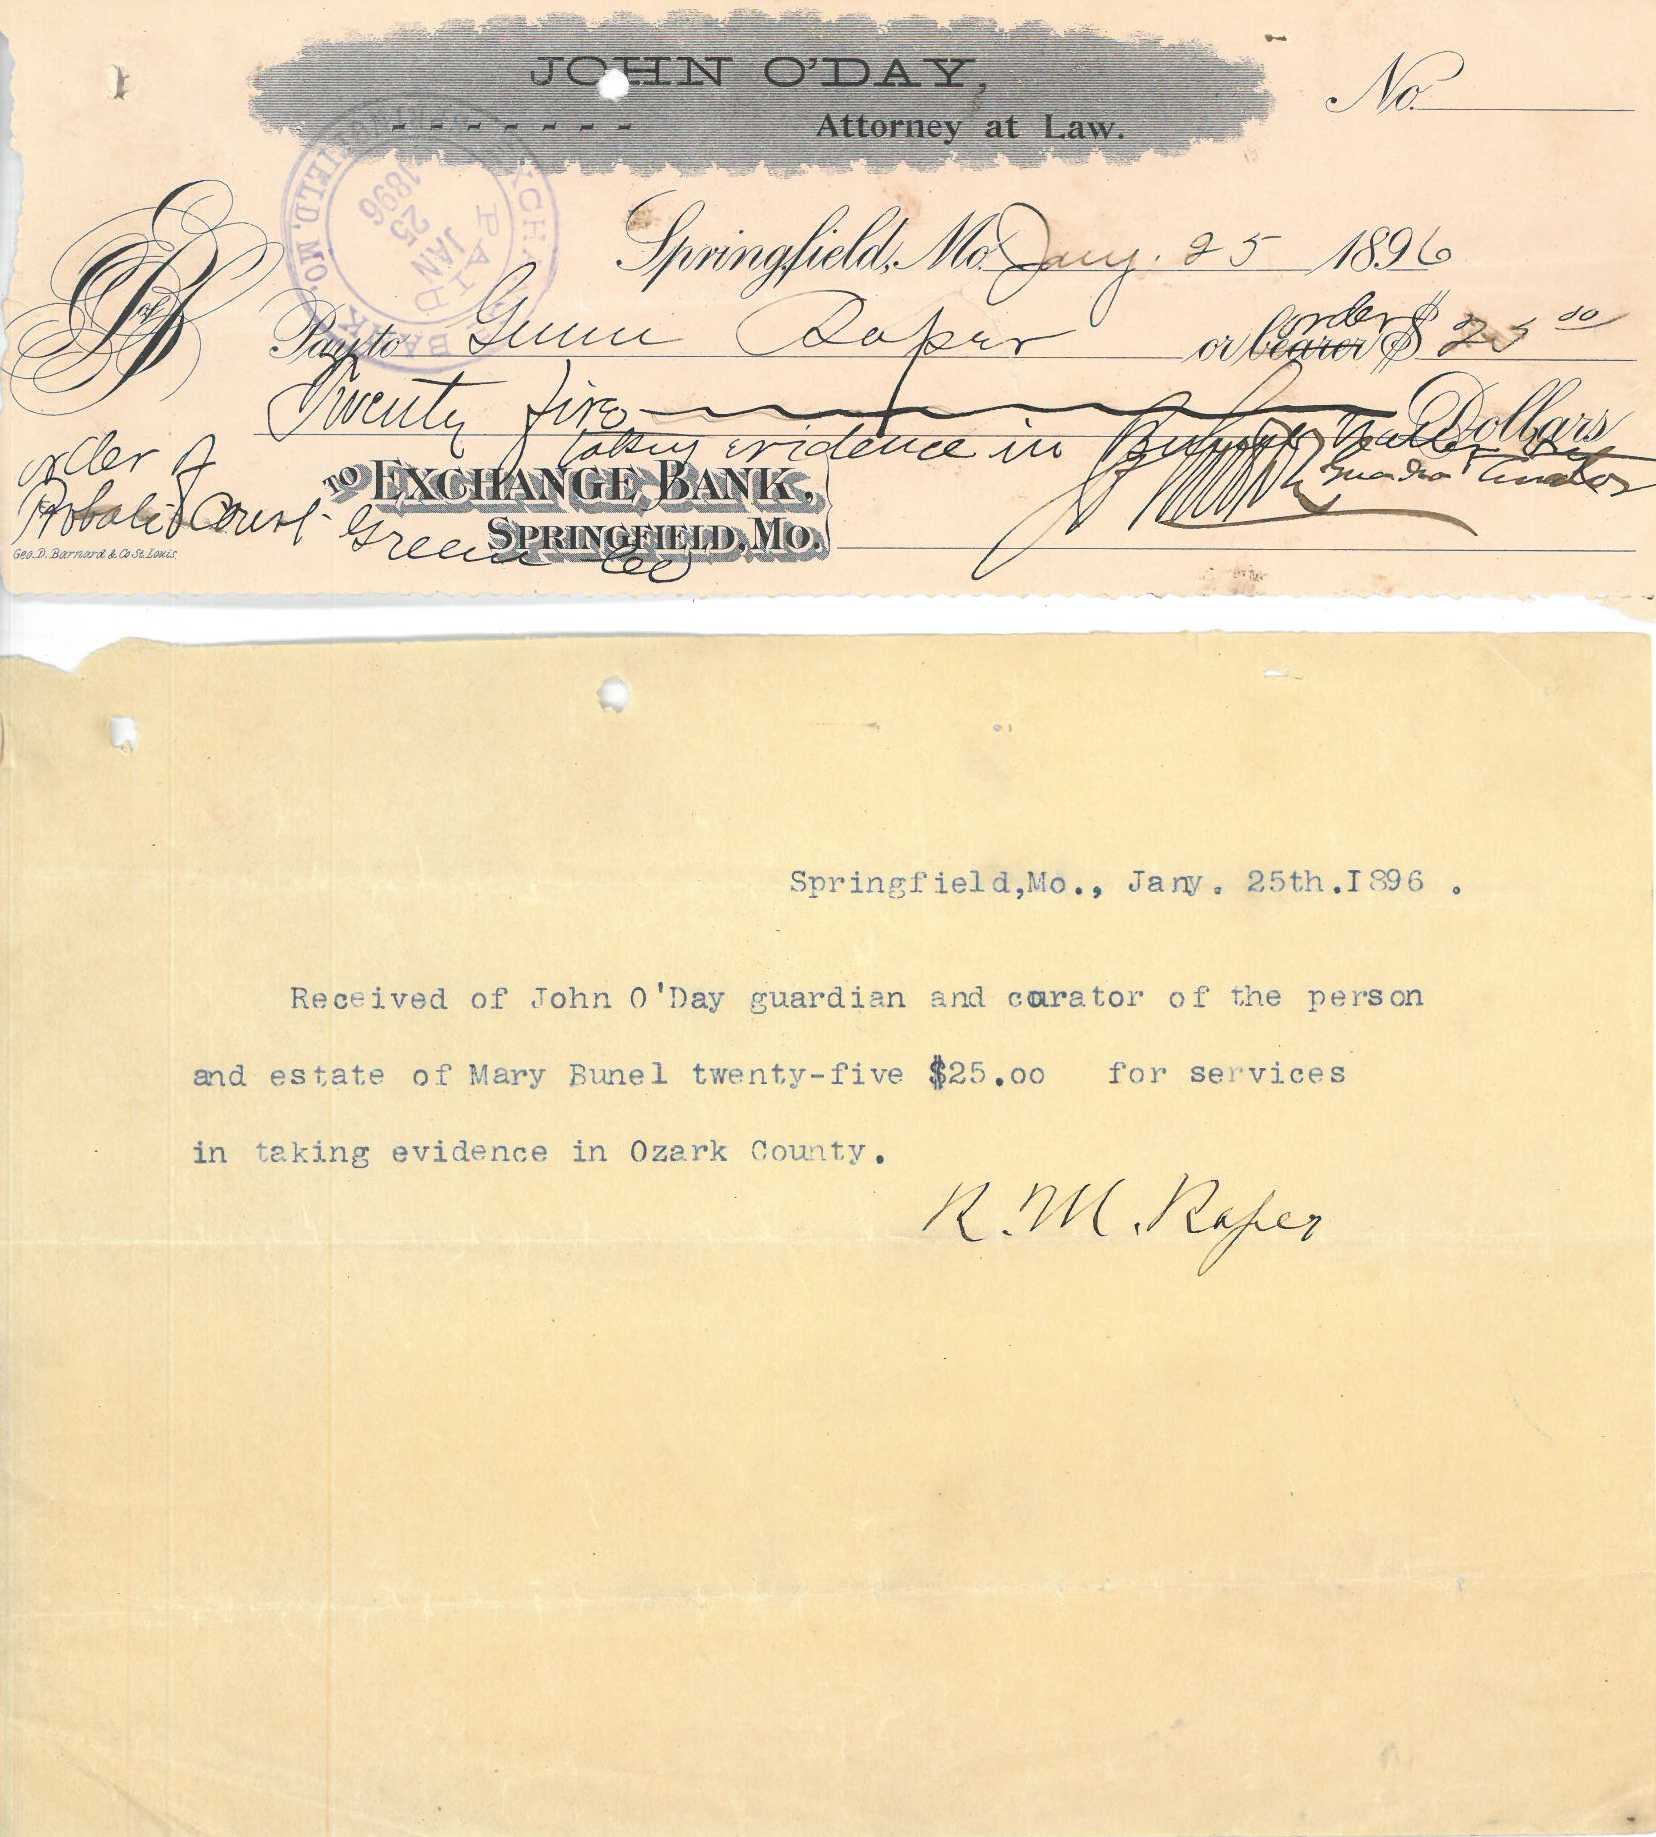 JOHN O'DAY,
Attorney at Law.
No.
EXCHANGE BANK
PAID
JAN
25
1896
SPRINGFIELD, MO.
Springfield, Mo. Jany. 25 1896
Pay to Gunn Roper or bearer order $ 25 00
Twenty five Dollars
taking evidence in
order of
Probate Court Greene Co
TO EXCHANGE BANK,
SPRINGFIELD, MO.
Geo. D. Barnard & Co St. Louis.
Springfield,Mo., Jany. 25th.I896 .
Received of John O'Day guardian and curator of the person
and estate of Mary Bunel twenty-five $25.oo for services
in taking evidence in Ozark County.
R. M. Roper